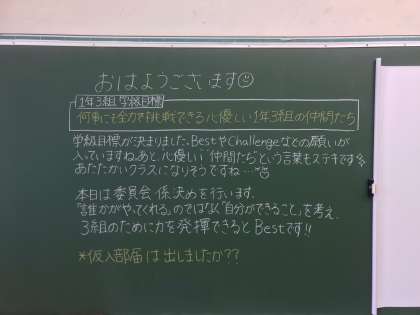 おはようございます
1年3組 学級目標
何事にも全力で挑戦できる心優しい1年3組の仲間たち
学級目標が決まりました。BestやChallengeなどの願いが
入っていますね。あと、心優しい"仲間たち"という言葉もステキです
あたたかいクラスになりそうですね…
本日は委員会 係決めを行います.
「誰かがやってくれる」のではなく「自分ができること」を考え.
3組のために力を発揮できるとBestです!!
*仮入部届は出しましたか??